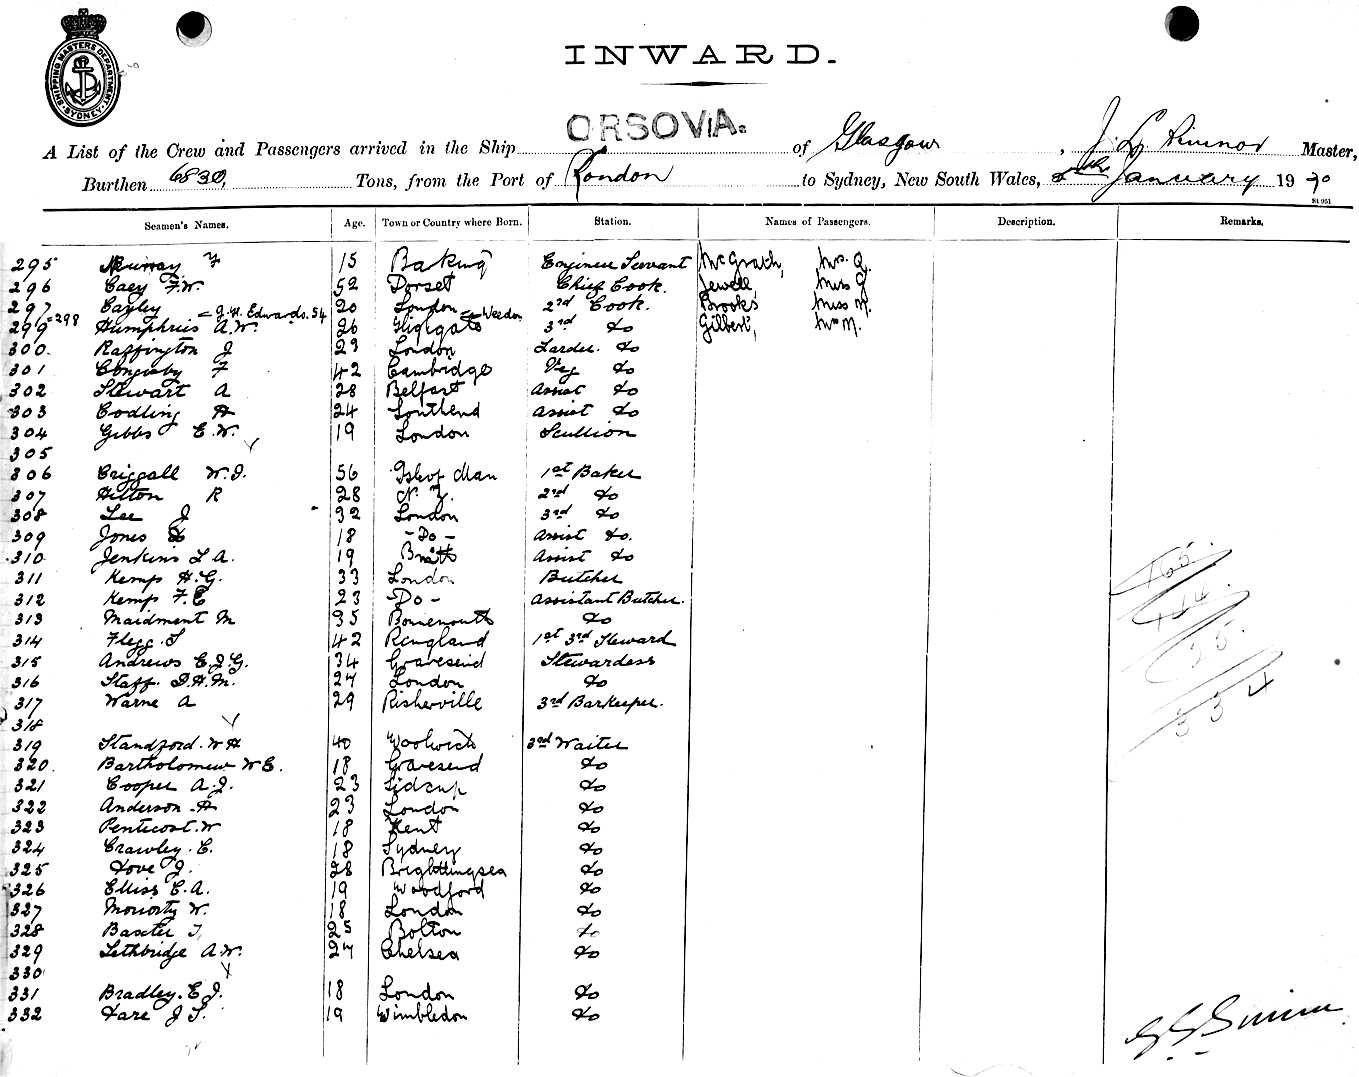 SHIPPING MASTERS DEPARTMENT SYDNEY
INWARD.
A List of the Crew and Passengers arrived in the Ship ORSOVA. of Glasgow, J. L. Master,
Burthen 6830, Tons, from the Port of London to Sydney, New South Wales, January 1920
St 951
Seamen's Names. Age. Town or Country where Born. Station. Names of Passengers. Description. Remarks.
295 Murray F 15 Barking Engineer Servant McGrath, Mrs. A.
296 Caey F.W. 52 Dorset Chief Cook. Jewell Miss G
297 Cayley 20 London 2nd Cook. Brooks Miss M.
298 J.H. Edwards. 54 Weedon
299 Humphries A.W. 26 Highgate 3rd do Gilbert, Mrs M.
300. Raffington J 23 London Larder. do
301 Coningsby F 42 Cambridge Veg do
302 Stewart A 28 Belfast Assist do
303 Codling H 24 Southend Assist do
304 Gibbs E.W. 19 London Scullion
305
306 Criggall W.J. 56 Isle of Man 1st Baker
307 Hilton R 28 N.Z. 2nd do
308 Lee J 32 London 3rd do
309 Jones 18 -Do- Assist do.
310 Jenkins L A. 19 Assist do
311 Kemp H.G. 33 London Butcher
312 Kemp F.C 23 -Do- Assistant Butcher.
313 Maidment M 35 Bornemouth do
314 Flegg. S 42 Ringland 1st 3rd Steward
315 Andrews E.J.G. 34 Gravesend Stewardess
316 Staff. D.H.M. 27 London do
317 Warne A 29 Risherville 3rd Barkeeper.
318
319 Standford. W H 40 Woolwich 3rd Waiter
320. Bartholomew W E. 18 Gravesend do
321 Cooper A.J. 23 Sidcup do
322 Anderson. H 23 London do
323 Pentecost. W 18 Kent do
324 Crawley. C. 18 Sydney do
325 Dove J. 28 Brightlingsea do
326 Elliss C.A. 19 Woodford do
327 Moriorty W. 18 London do
328 Baxter J, 25 Bolton do
329 Lethbridge A.W. 27 Chelsea do
330
331 Bradley. E J. 18 London do
332 Dare J S. 19 Wimbledon do
165.
144.
25.
334